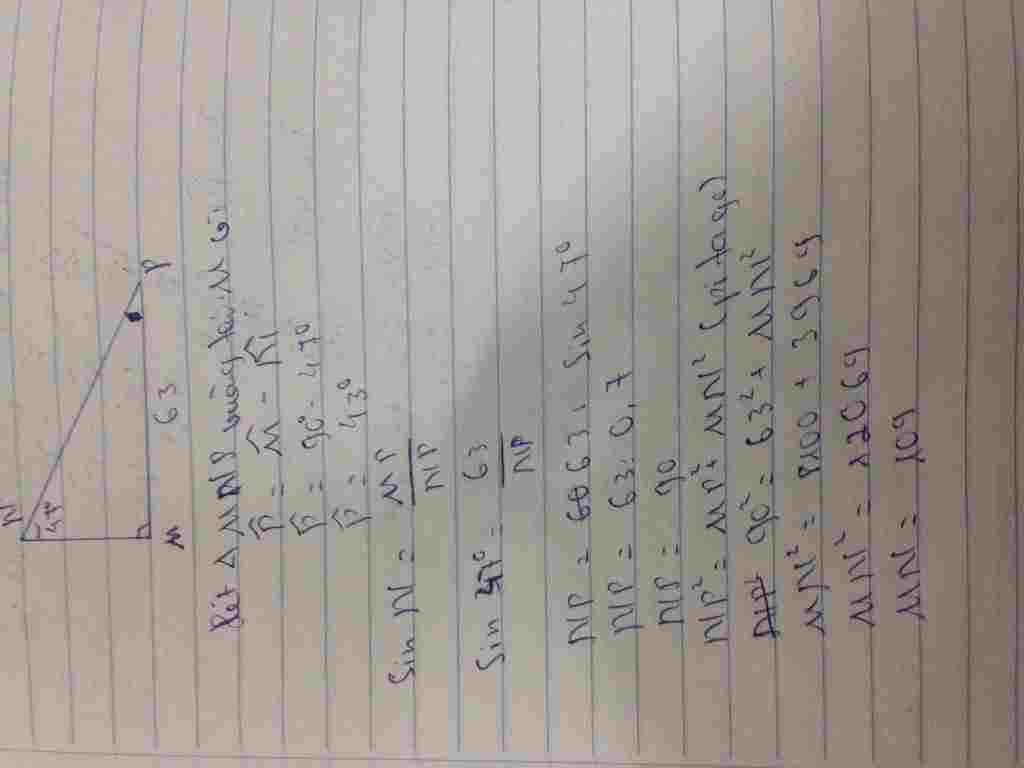 N
47°
M
63
P
Xét Δ MNP vuông tại M có:
P̂ = M̂ - N̂
P̂ = 90° - 47°
P̂ = 43°
Sin N = MP/NP
Sin 47° = 63/NP
NP = 63 . Sin 47°
NP = 63 : 0,7
NP = 90
NP² = MP² + MN² (pitago)
90² = 63² + MN²
MN² = 8100 + 3969
MN² = 12069
MN = 109